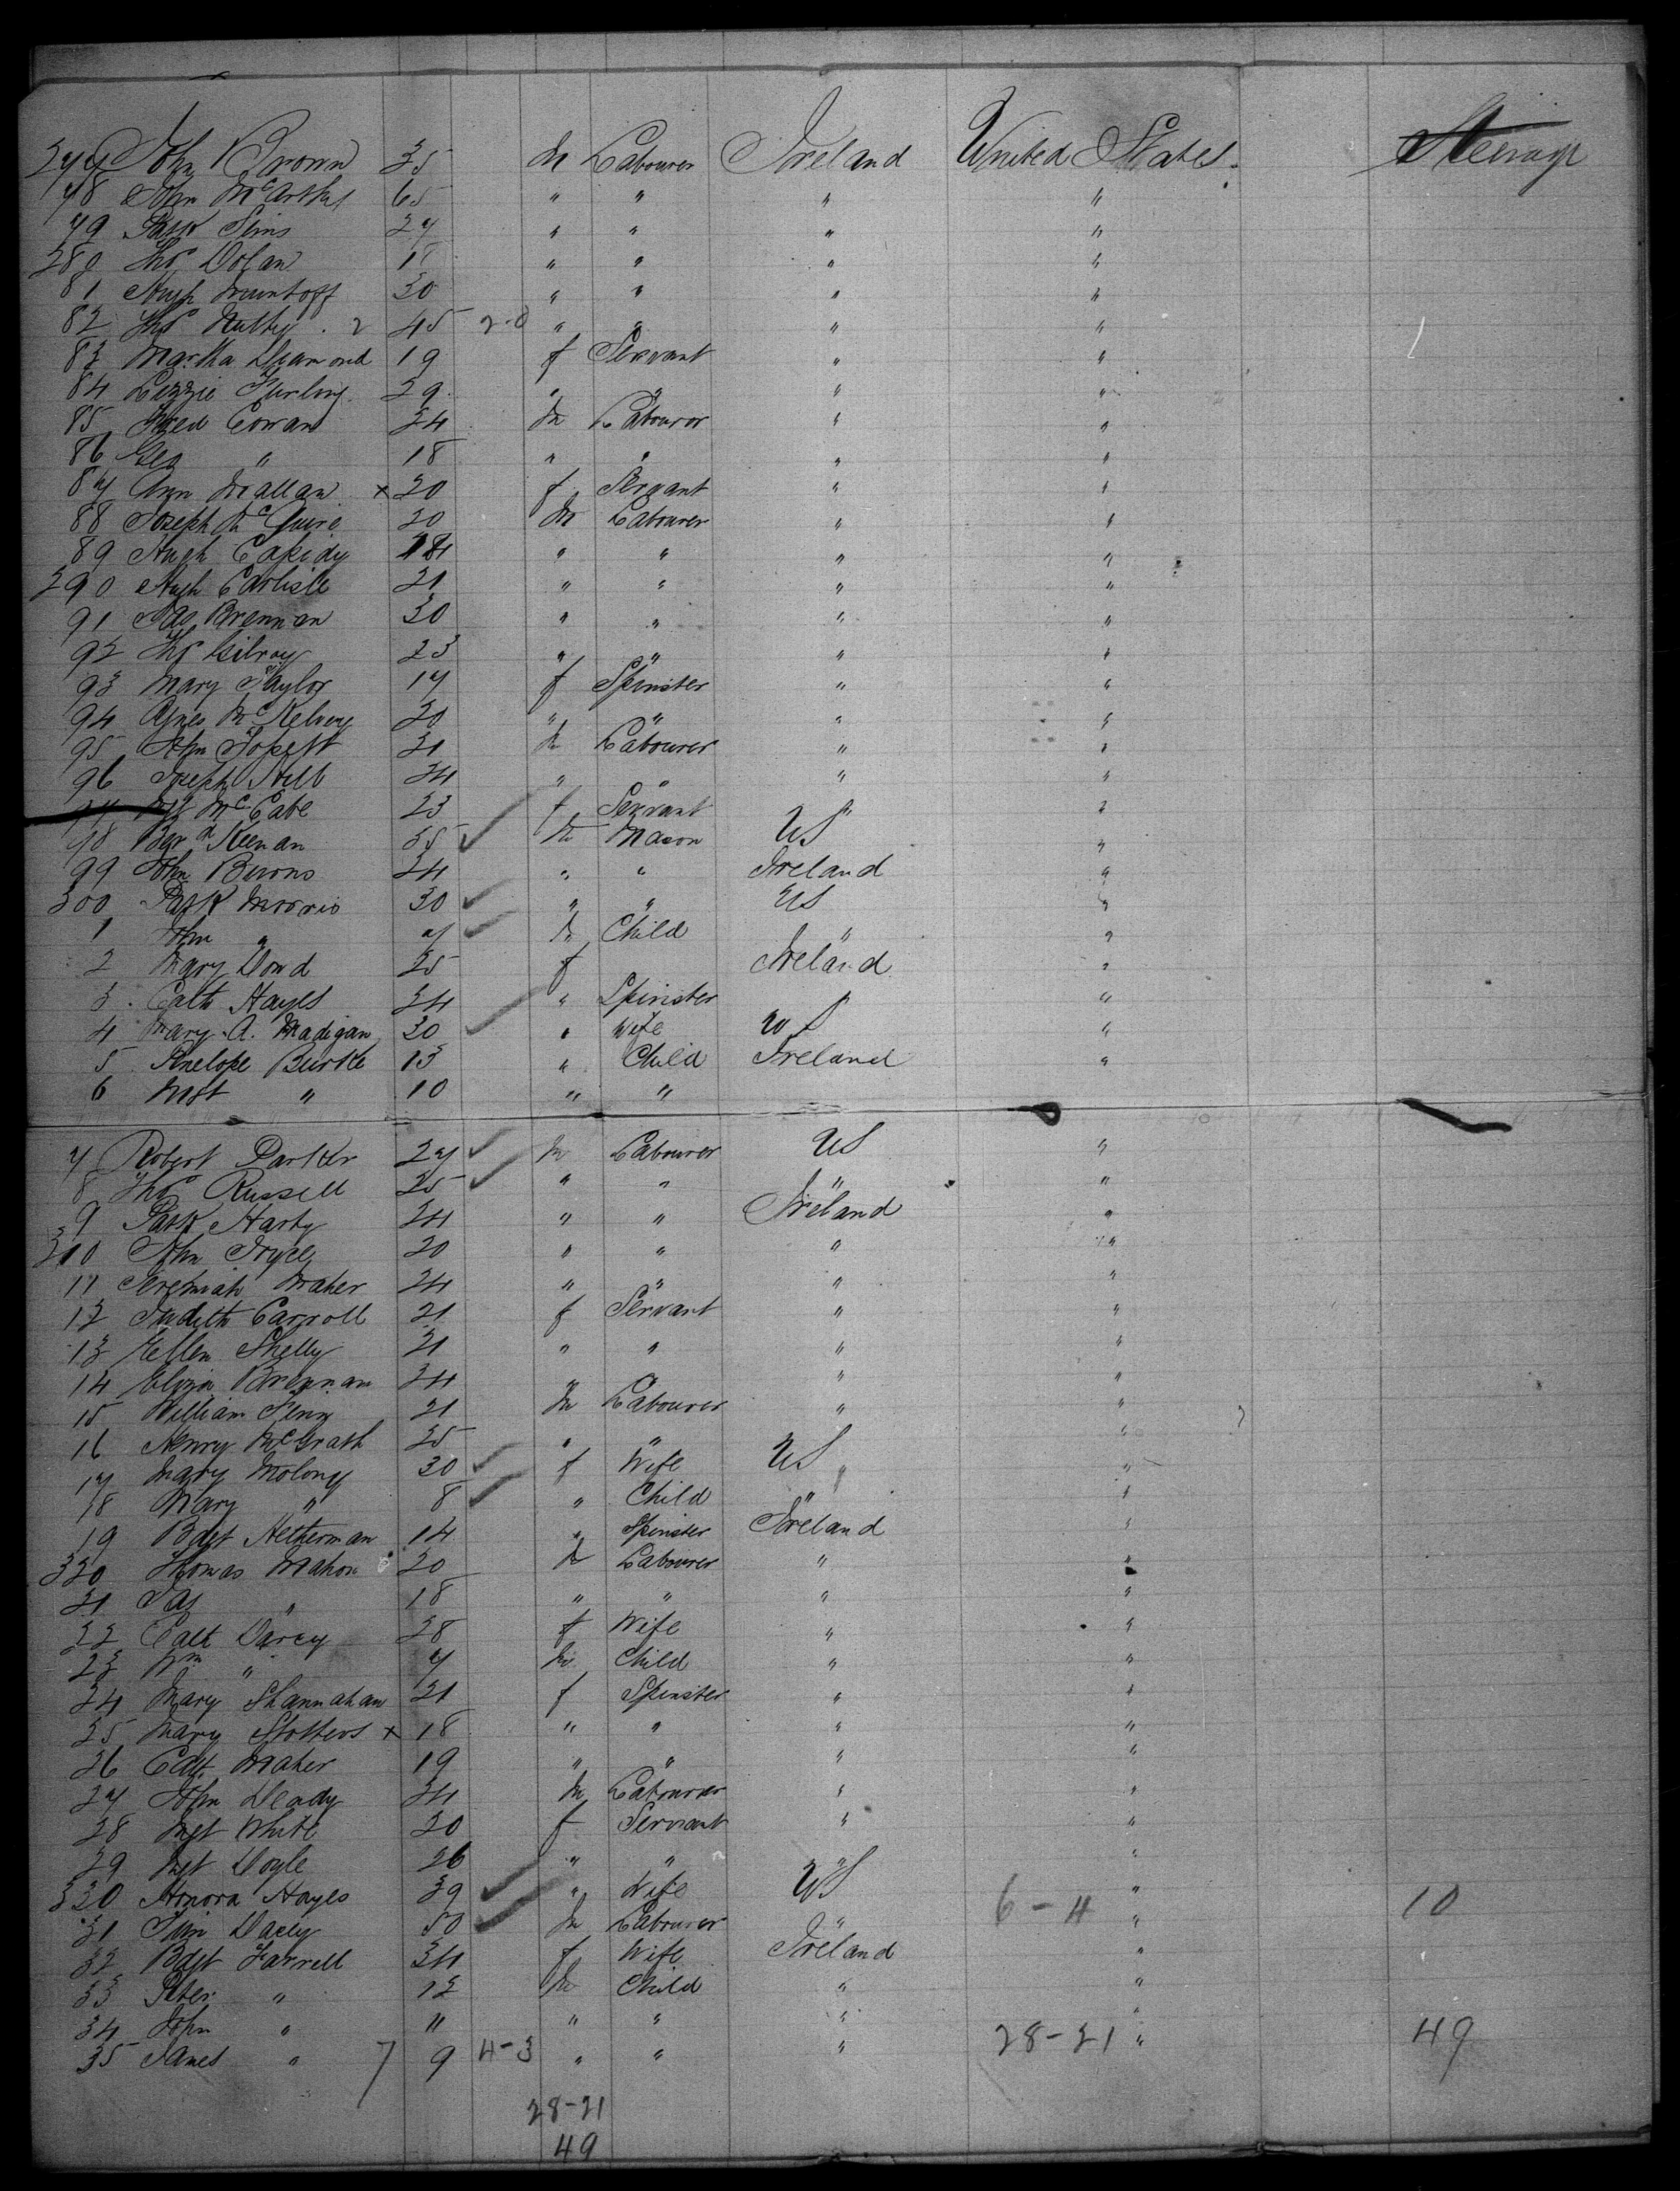 277 John Brown 35 m Labourer Ireland United States. Steerage
78 John McArthur 65 " " " "
79 Patk 27 " " " "
280 Thos Dolan 18 " " " "
81 Hugh 30 " " " "
82 Thos Nulty . 2 45 2-0 " " " "
83 Martha Diamond 19 f Servant " "
84 Lizzie Furlong 29 " " " "
85 Cowan 24 m Labourer " "
86 Geo " 18 " " " "
87 Ann Mallan x 20 f Servant " "
88 Joseph McGuire 20 m Labourer " "
89 Hugh Cassidy " " " "
290 Hugh Carlisle 21 " " " "
91 Jas Brennan 30 " " " "
92 Thos Gilroy 23 " " " "
93 Mary Taylor 17 f Spinster " "
94 Agnes McKelvey 20 " " " "
95 John 21 m Labourer " "
96 Joseph 24 " " " "
97 Mgt McCabe 23 f Servant " "
98 Bard Keenan 35 m Mason US "
99 John Burons 24 " " Ireland "
300 Patk Morris 30 " " US "
1 John " 7 m Child " "
2 Mary Dowd 25 f Ireland "
3 Cath Hayes 24 " Spinster " "
4 Mary A. Madigan 30 " Wife US "
5 Penelope Burke 13 " Child Ireland "
6 Mgt " 10 " "
7 Robert Parker 27 m Labourer US "
8 Thos Russell 25 " " " "
9 Patk Harty 24 " " Ireland "
310 John Joyce 20 " " " "
11 Jeremiah Maher 24 " " " "
12 Judith Carroll 21 f Servant " "
13 Ellen Shelly 21 " " " "
14 Eliza Brennan 24 " " " "
15 William 21 m Labourer " "
16 Henry McGrath 25 " " " "
17 Mary Molony 30 f Wife US "
18 Mary " 8 " Child " "
19 Bdgt Netterman 14 " Spinster Ireland "
320 Thomas Mahon 20 m Labourer " "
21 Jas " 18 " " " "
22 Cath Darcy 28 f Wife " "
23 Wm " 7 m Child " "
24 Mary Shannahan 21 f Spinster " "
25 Mary x 18 " " " "
26 Cath Maher 19 " " " "
27 John Deady 24 m Labourer " "
28 Mgt White 20 f Servant " "
29 Mgt Doyle 26 " " " "
330 Honora Hayes 39 " Wife US " 6-4 10
31 Tim Dacey 50 m Labourer " "
32 Bdgt Farrell 34 f Wife Ireland "
33 Peter " 12 m Child " "
34 John " 11 " " " "
35 James " 7 9 4-3 " " " 28-21 " 49
28-21
49